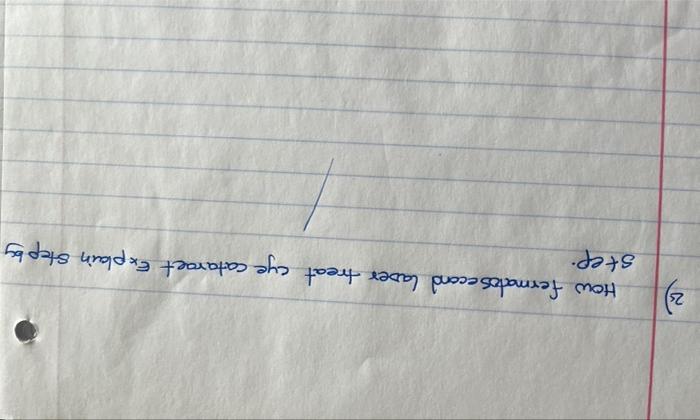 2) How fermatosecond laser treat eye cataract Explain Step by
Step.